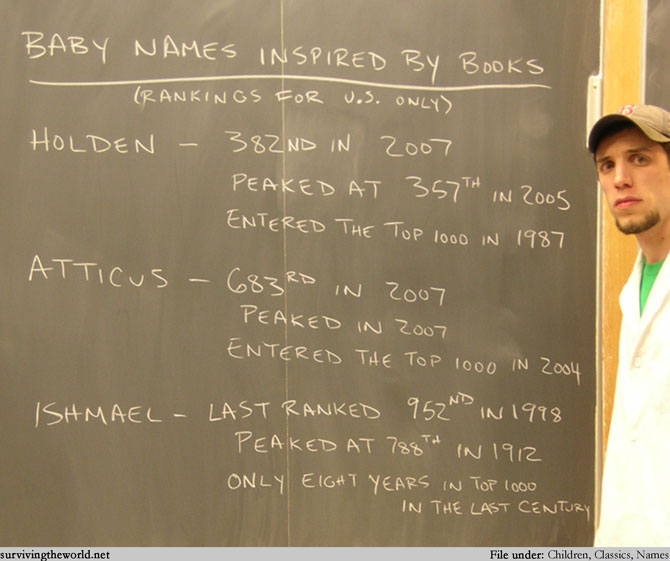 BABY NAMES INSPIRED BY BOOKS
(RANKINGS FOR U.S. ONLY)
HOLDEN - 382ND IN 2007
PEAKED AT 357TH IN 2005
ENTERED THE TOP 1000 IN 1987
ATTICUS - 683RD IN 2007
PEAKED IN 2007
ENTERED THE TOP 1000 IN 2004
ISHMAEL - LAST RANKED 952ND IN 1998
PEAKED AT 788TH IN 1912
ONLY EIGHT YEARS IN TOP 1000
IN THE LAST CENTURY
survivingtheworld.net File under: Children, Classics, Names